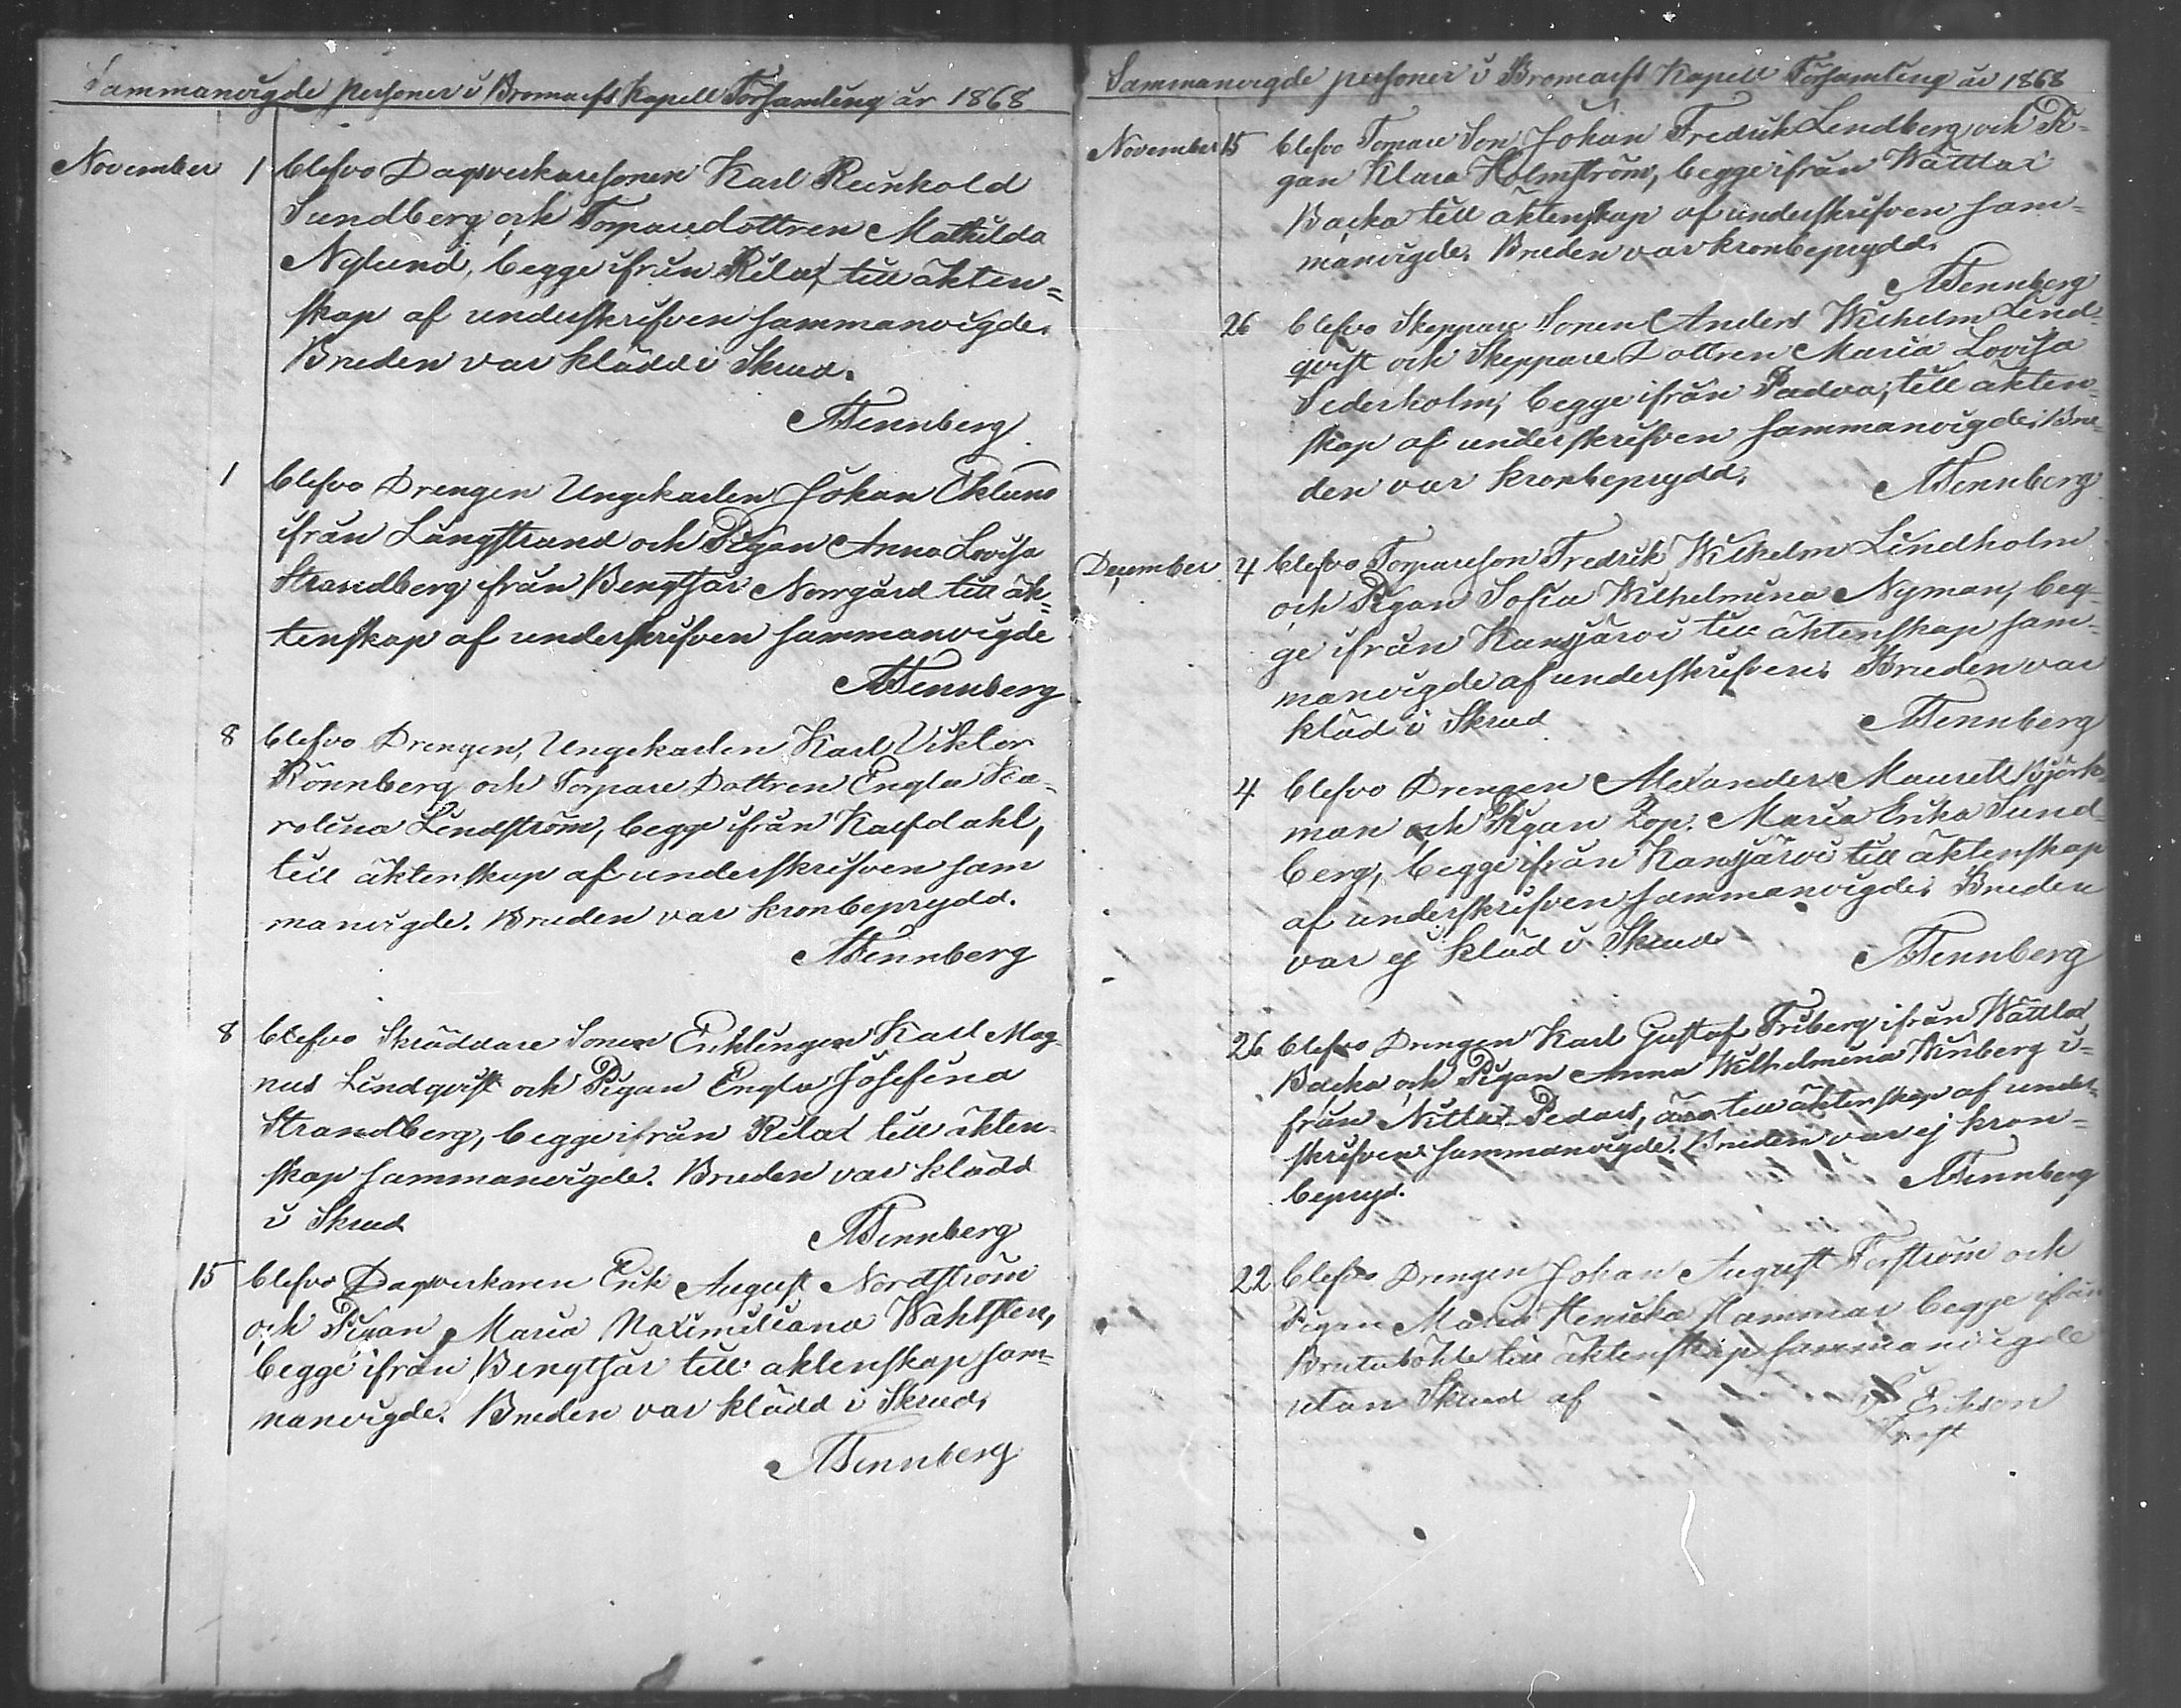 Sammanvigde personer i Bromarfs Kapell Församling år 1868
November 1 blefvo Dagsverkaresonen Karl Reinhold
Sundberg och Torparedottren Mathilda
Nylund, begge ifrån Rilax, till äkten=
skap af underskrifven sammanvigde.
Bruden var klädd i Skrud.
ATennberg
1 blefvo Drengen Ungekarlen Johan Eklund
ifrån Långstrand och Pigan Anna Lovisa
Strandberg ifrån Bengtsår Norrgård till äk=
tenskap af underskrifven sammanvigde
ATennberg
8 blefvo Drengen, Ungekarlen Karl Viktor
Rönnberg och Torpare Dottren Engla Ka-
rolina Lindström, begge ifrån Kalfdahl,
till äktenskap af underskrifven sam
manvigde. Bruden var kronbeprydd.
ATennberg
8 blefvo Skräddare Sonen Enklingen Karl Mag-
nus Lindqvist och Pigan Engla Josefina
Strandberg, begge ifrån Rilax till äkten-
skap sammanvigde. Bruden var klädd
i Skrud
ATennberg
15 blefvo Dagsverkaren Erik August Nordström
och Pigan Maria Maximiliana Wahlsten,
begge ifrån Bengtsår till äktenskap sam=
manvigde. Bruden var klädd i Skrud.
ATennberg
Sammanvigde personer i Bromarfs Kapell Församling år 1868
November 15 blefvo Torpare Son Johan Fredrik Lindberg och Pi-
gan Klara Holmström, begge ifrån Wättlax
Backa till äktenskap af underskrifven sam=
manvigde. Bruden var kronbeprydd.
ATennberg
26 blefvo Skeppare Sonen Anders Wilhelm Lind-
qvist och Skeppare Dottren Maria Lovisa
Sederholm, begge ifrån Padva, till äkten-
skap af underskrifven sammanvigde. Bru-
den var kronbeprydd.
ATennberg
December 4 blefvo Torpareson Fredrik Wilhelm Lindholm
och Pigan Sofia Wilhelmina Nyman, beg-
ge ifrån Kansjärvi till äktenskap sam-
manvigde af underskrifven. Bruden var
kläd i Skrud
ATennberg
4 blefvo Drengen Alexander Mauritz Björk-
man och Pigan Maria Erika Sund-
berg, begge ifrån Kansjärvi till äktenskap
af underskrifven sammanvigde. Bruden
var ej kläd i Skrud
ATennberg
26 blefvo Drengen Karl Gustaf Friberg ifrån Wättlax
Backa och Pigan Anna Wilhelmina Winberg i-
från Nitlax Pedars, till äktenskap af under-
skrifven sammanvigde. Bruden var ej kron=
bepryd.
ATennberg
22 blefvo Drengen Johan August Forström och
Pigan Maria Henrika Hammar begge ifrån
till äktenskap sammanvigde
utan Skrud af
Erikson